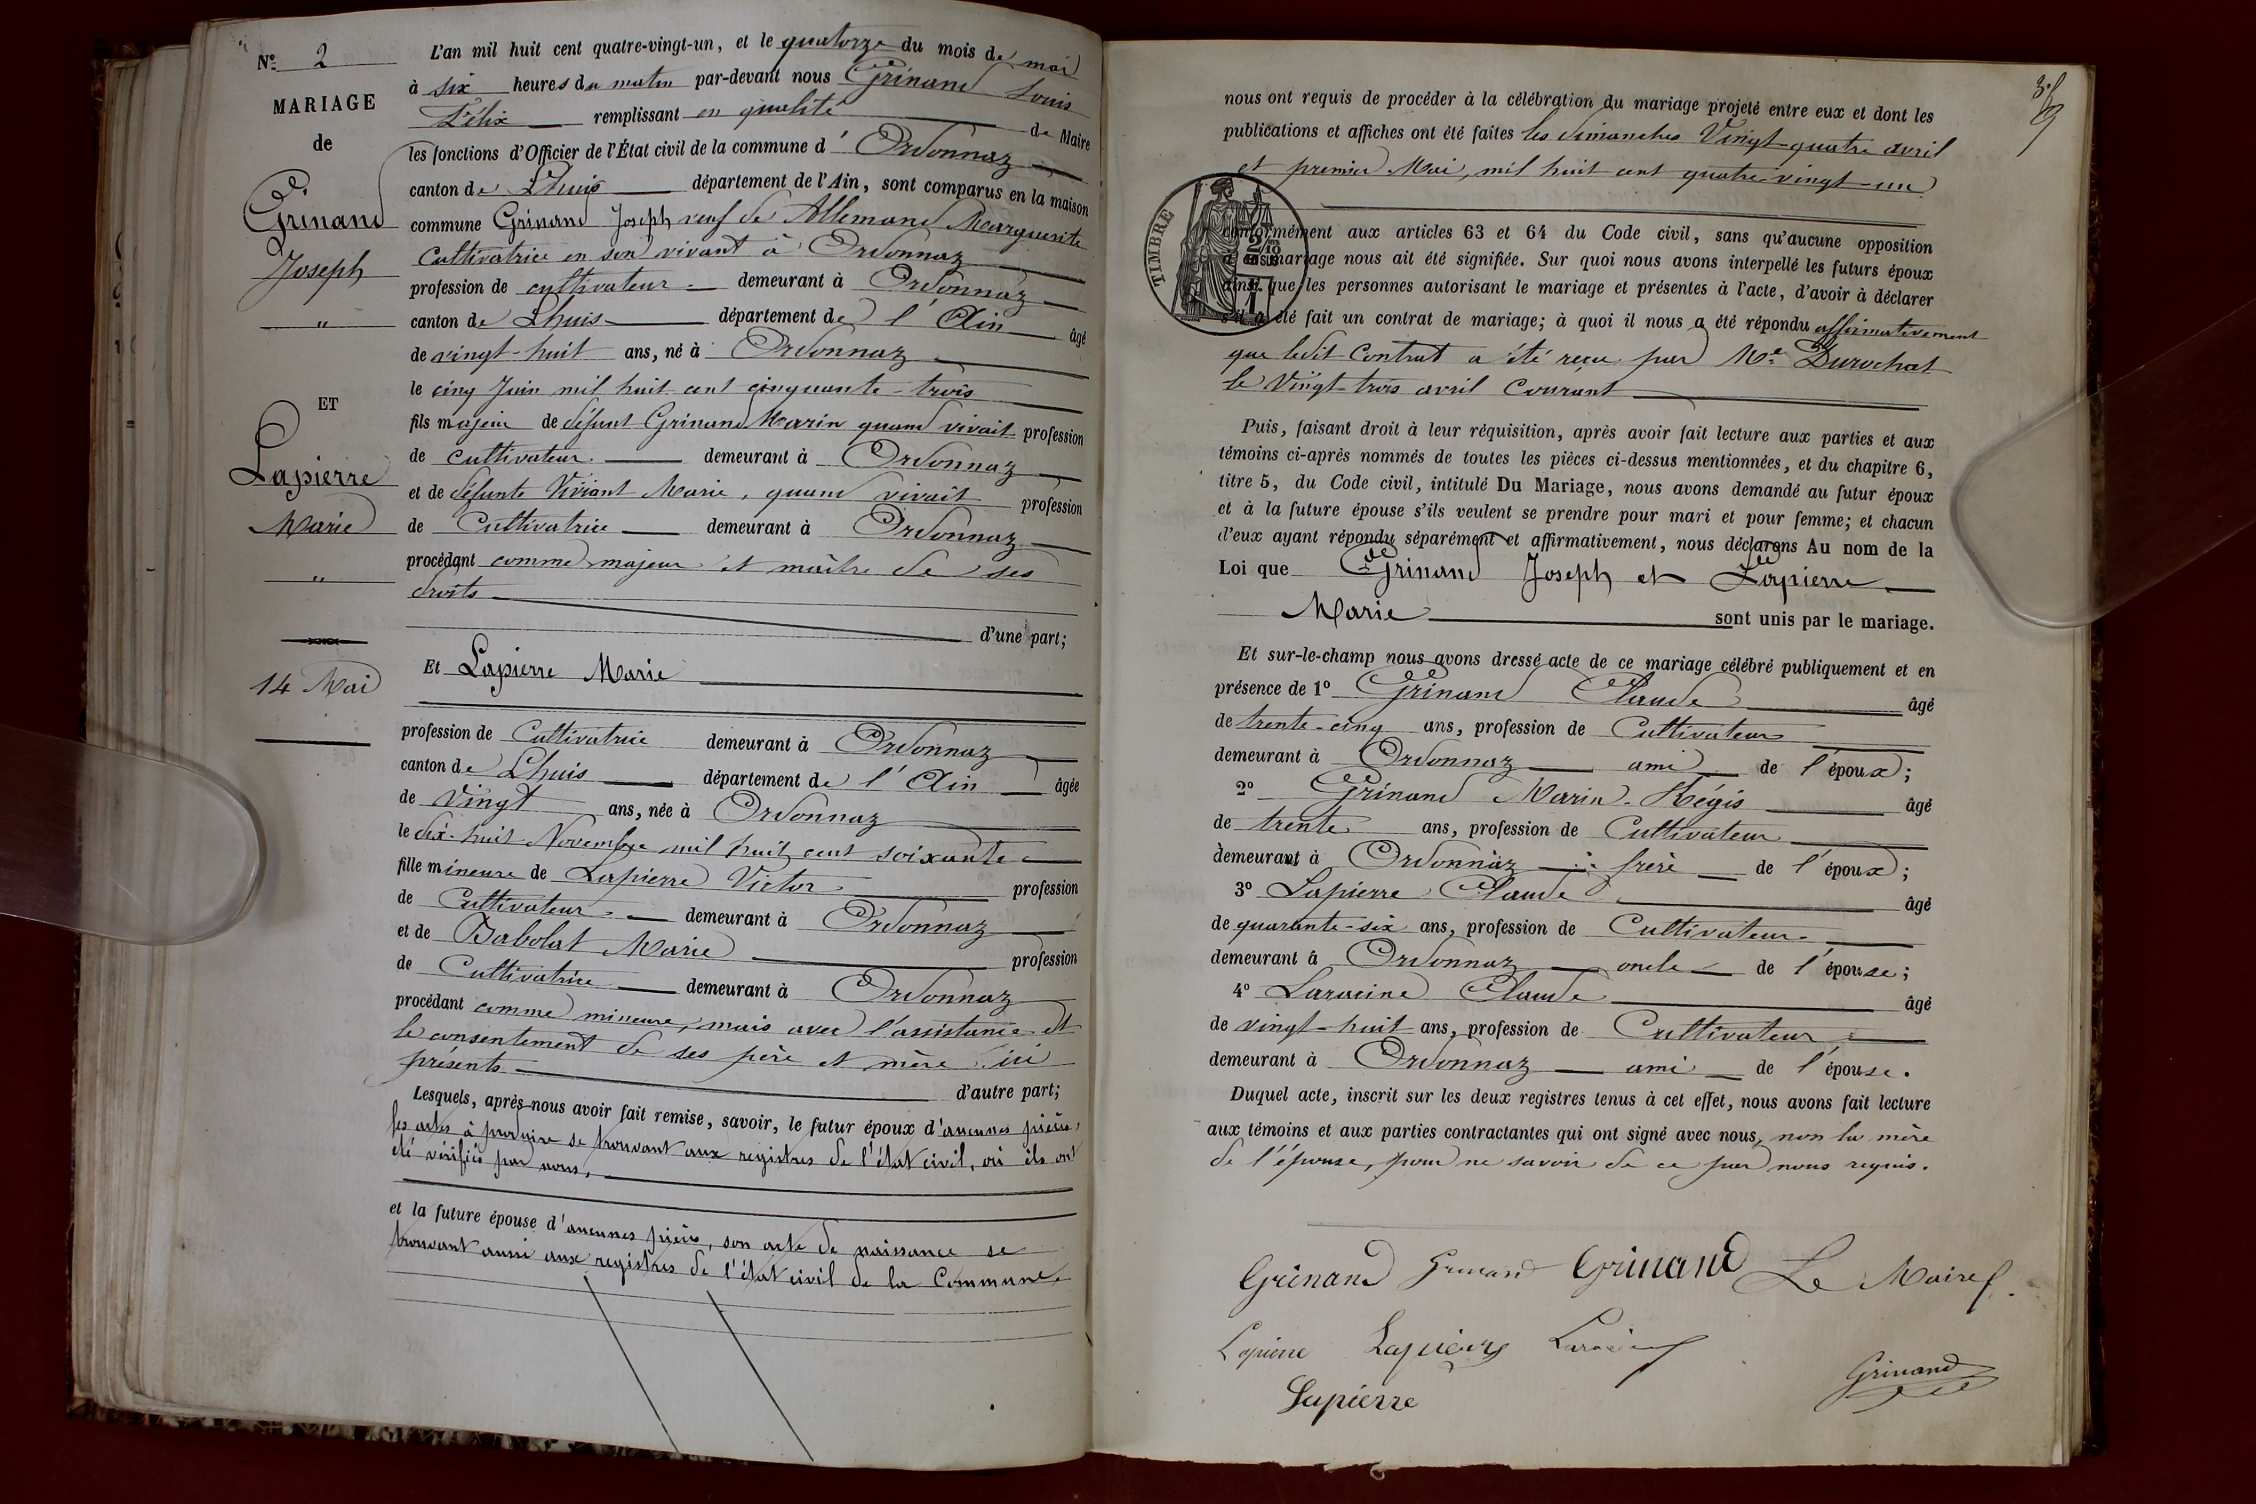 Nº 2
MARIAGE
de
Grinand
Joseph
"
ET
Lapierre
Marie
"
14 Mai
L'an mil huit cent quatre-vingt-un, et le quatorze du mois de mai
à six heures du matin par-devant nous Grinand Louis
Félix remplissant en qualité de Maire
les fonctions d'Officier de l'État civil de la commune d'Ordonnaz
canton de Lhuis département de l'Ain, sont comparus en la maison
commune Grinand Joseph veuf de Allemand Marguerite
Cultivatrice en son vivant à Ordonnaz
profession de cultivateur demeurant à Ordonnaz
canton de Lhuis département de l'Ain âgé
de vingt-huit ans, né à Ordonnaz
le cinq Juin mil huit cent cinquante-trois
fils majeur de défunt Grinand Marin quand vivait profession
de cultivateur demeurant à Ordonnaz
et de défunte Viviant Marie, quand vivait profession
de Cultivatrice demeurant à Ordonnaz
procédant comme majeur et maître de ses
droits
d'une part;
Et Lapierre Marie
profession de Cultivatrice demeurant à Ordonnaz
canton de Lhuis département de l'Ain âgée
de Vingt ans, née à Ordonnaz
le dix-huit Novembre mil huit cent soixante
fille mineure de Lapierre Victor profession
de Cultivateur demeurant à Ordonnaz
et de Babolat Marie profession
de Cultivatrice demeurant à Ordonnaz
procédant comme mineure, mais avec l'assistance et
le consentement de ses père et mère ici
présents
d'autre part;
Lesquels, après nous avoir fait remise, savoir, le futur époux d'aucunes pièces,
les actes à produire se trouvant aux registres de l'état civil, où ils ont
été vérifiés par nous,
et la future épouse d'aucunes pièces, son acte de naissance se
trouvant aussi aux registres de l'état civil de la Commune.
nous ont requis de procéder à la célébration du mariage projeté entre eux et dont les
publications et affiches ont été faites les dimanches Vingt-quatre avril
et premier Mai, mil huit cent quatre-vingt-un
TIMBRE
conformément aux articles 63 et 64 du Code civil, sans qu'aucune opposition
à ce mariage nous ait été signifiée. Sur quoi nous avons interpellé les futurs époux
ainsi que les personnes autorisant le mariage et présentes à l'acte, d'avoir à déclarer
s'il a été fait un contrat de mariage; à quoi il nous a été répondu affirmativement
que ledit Contrat a été reçu par Me Durochat
le Vingt-trois avril Courant
Puis, faisant droit à leur réquisition, après avoir fait lecture aux parties et aux
témoins ci-après nommés de toutes les pièces ci-dessus mentionnées, et du chapitre 6,
titre 5, du Code civil, intitulé Du Mariage, nous avons demandé au futur époux
et à la future épouse s'ils veulent se prendre pour mari et pour femme; et chacun
d'eux ayant répondu séparément et affirmativement, nous déclarons Au nom de la
Loi que Grinand Joseph et Lapierre
Marie sont unis par le mariage.
Et sur-le-champ nous avons dressé acte de ce mariage célébré publiquement et en
présence de 1º Grinand Claude âgé
de trente-cinq ans, profession de Cultivateur
demeurant à Ordonnaz ami de l'époux;
2º Grinand Marin-Régis âgé
de trente ans, profession de Cultivateur
demeurant à Ordonnaz frère de l'époux;
3º Lapierre Claude âgé
de quarante-six ans, profession de Cultivateur
demeurant à Ordonnaz oncle de l'épouse;
4º Laracine Claude âgé
de vingt-huit ans, profession de Cultivateur
demeurant à Ordonnaz ami de l'épouse.
Duquel acte, inscrit sur les deux registres tenus à cet effet, nous avons fait lecture
aux témoins et aux parties contractantes qui ont signé avec nous, non la mère
de l'épouse, pour ne savoir de ce par nous requis.
Grinand Grinand Grinand Le Maire
Lapierre Lapierre
Grinand
Lapierre